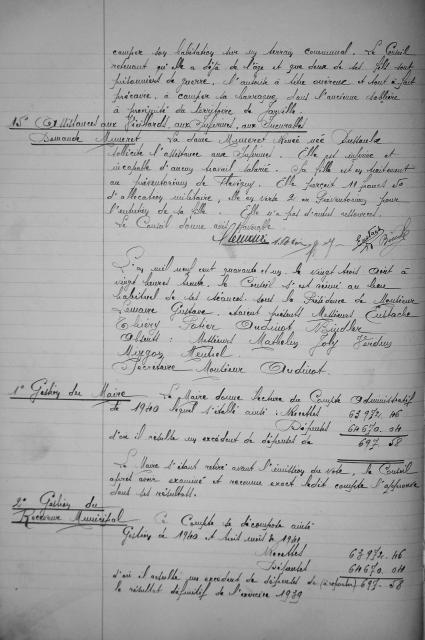 camper son habitation sur un terrain communal. Le Conseil
retenant qu'elle a déjà de l'âge et que deux de ses fils sont
prisonniers de guerre. l'autorise à titre onéreux et tout à fait
précaire, à camper sa baraque dans l'ancienne sablière
à proximité du territoire de
15° Assistances aux Vieillards, aux Infirmes, aux Incurables
Demande La dame Renée née
sollicite l'assistance aux Infirmes. Elle est infirme et
incapable d'aucun travail salarié. Sa fille est en traitement
au préventorium de Elle perçoit 11 francs 50
d'allocation militaire, elle en verse 2 au Préventorium pour
l'entretien de sa fille. Elle n'a pas d'autres ressources.
Le Conseil donne avis favorable
L'an mil neuf cent quarante et un, le vingt trois Août à
vingt heures trente, le Conseil s'est réuni au lieu
habituel de ses séances sous la Présidence de Monsieur
Lemaire Gustave. étaient présents Messieurs Eustache
Thiéry Oudinot
Absents : Messieurs Mathelin Joly Verdun
Secrétaire Monsieur Oudinot.
1° Gestion du Maire Le Maire donne lecture du Compte Administratif
de 1940 lequel s'établit ainsi : Recettes 63 972. 46
Dépenses 64 670. 04
d'où il résulte un excédent de dépenses de 697. 58
Le Maire s'étant retiré avant l'émission du vote, le Conseil
après avoir examiné et reconnu exact ledit compte l'approuve
dans ses résultats.
2° Gestion du
Receveur Municipal Ce Compte se décompose ainsi
Gestion de 1940 et huit mois de 1941
Recettes 63 972. 46
Dépenses 64 670. 04
d'où il résulte un excédent de dépenses de (à reporter) 697. 58
le résultat définitif de l'exercice 1939